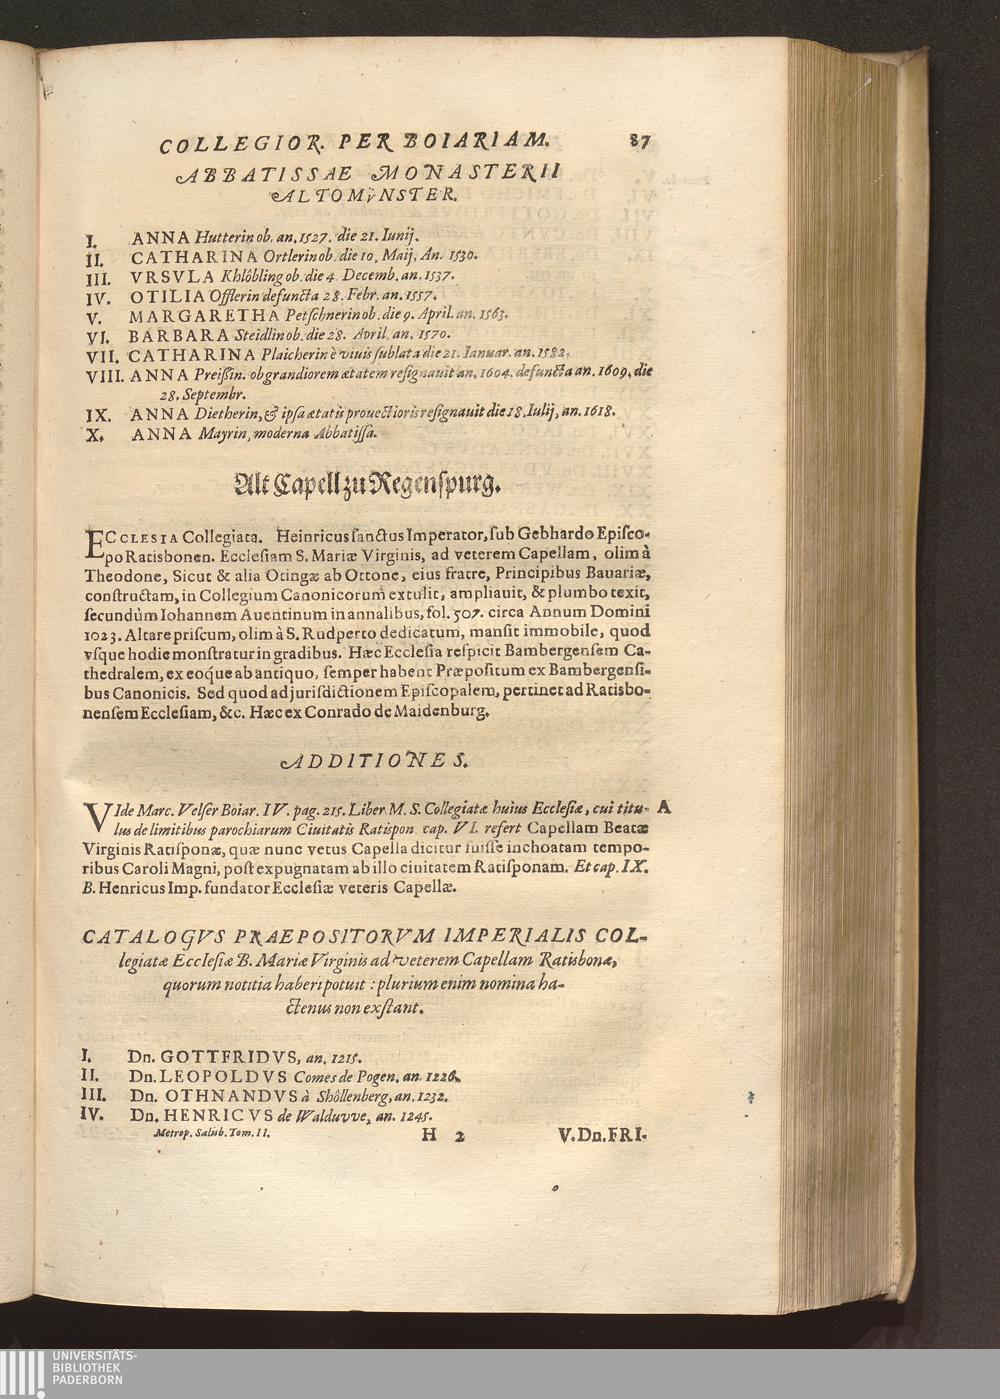 COLLEGIOR. PER BOIARIAM. 87
ABBATISSAE MONASTERII
ALTOMÿNSTER.
I. ANNA Hutterin ob. an. 1527. die 21. Iunij.
II. CATHARINA Ortlerin ob. die 10. Maij, An. 1530.
III. VRSVLA Khlôbling ob. die 4. Decemb. an. 1537.
IV. OTILIA Offlerin defuncta 28. Febr. an. 1557.
V. MARGARETHA Petschnerin ob. die 9. April. an. 1563.
VI. BARBARA Steidlin ob. die 28. April. an. 1570.
VII. CATHARINA Plaicherin è viuis sublata die 21. Ianuar. an. 1582.
VIII. ANNA Preißin. ob grandiorem ætatem resignauit an. 1604. defuncta an. 1609. die
28. Septembr.
IX. ANNA Dietherin, & ipsa ætatis prouectioris resignauit die 18. Iulij, an. 1618.
X. ANNA Mayrin, moderna Abbatissa.
Alt Capell zu Regenspurg.
ECCLESIA Collegiata. Heinricus sanctus Imperator, sub Gebhardo Episco-
po Ratisbonen. Ecclesiam S. Mariæ Virginis, ad veterem Capellam, olim à
Theodone, Sicut & alia Otingæ ab Ottone, eius fratre, Principibus Bauariæ,
constructam, in Collegium Canonicorum extulit, ampliauit, & plumbo texit,
secundùm Iohannem Auentinum in annalibus, fol. 507. circa Annum Domini
1023. Altare priscum, olim à S. Rudperto dedicatum, mansit immobile, quod
vsque hodie monstratur in gradibus. Hæc Ecclesia respicit Bambergensem Ca-
thedralem, ex eoque ab antiquo, semper habent Præpositum ex Bambergensi-
bus Canonicis. Sed quod ad jurisdictionem Episcopalem, pertinet ad Ratisbo-
nensem Ecclesiam, &c. Hæc ex Conrado de Maidenburg.
ADDITIONES.
VIde Marc. Velser Boiar. IV. pag. 215. Liber M. S. Collegiatæ huius Ecclesiæ, cui titu- A
lus de limitibus parochiarum Ciuitatis Ratispon. cap. VI. refert Capellam Beatæ
Virginis Ratisponæ, quæ nunc vetus Capella dicitur fuisse inchoatam tempo-
ribus Caroli Magni, post expugnatam ab illo ciuitatem Ratisponam. Et cap. IX.
B. Henricus Imp. fundator Ecclesiæ veteris Capellæ.
CATALOGVS PRAEPOSITORVM IMPERIALIS COL-
legiatæ Ecclesiæ B. Mariæ Virginis ad veterem Capellam Ratisbonæ,
quorum notitia haberi potuit : plurium enim nomina ha-
ctenus non exstant.
I. Dn. GOTTFRIDVS, an. 1215.
II. Dn. LEOPOLDVS Comes de Pogen. an. 1226.
III. Dn. OTHNANDVS à Shôllenberg, an. 1232.
IV. Dn. HENRICVS de Walduvve, an. 1245.
Metrop. Salisb. Tom. II. H 2 V. Dn. FRI-
UNIVERSITÄTS-
BIBLIOTHEK
PADERBORN